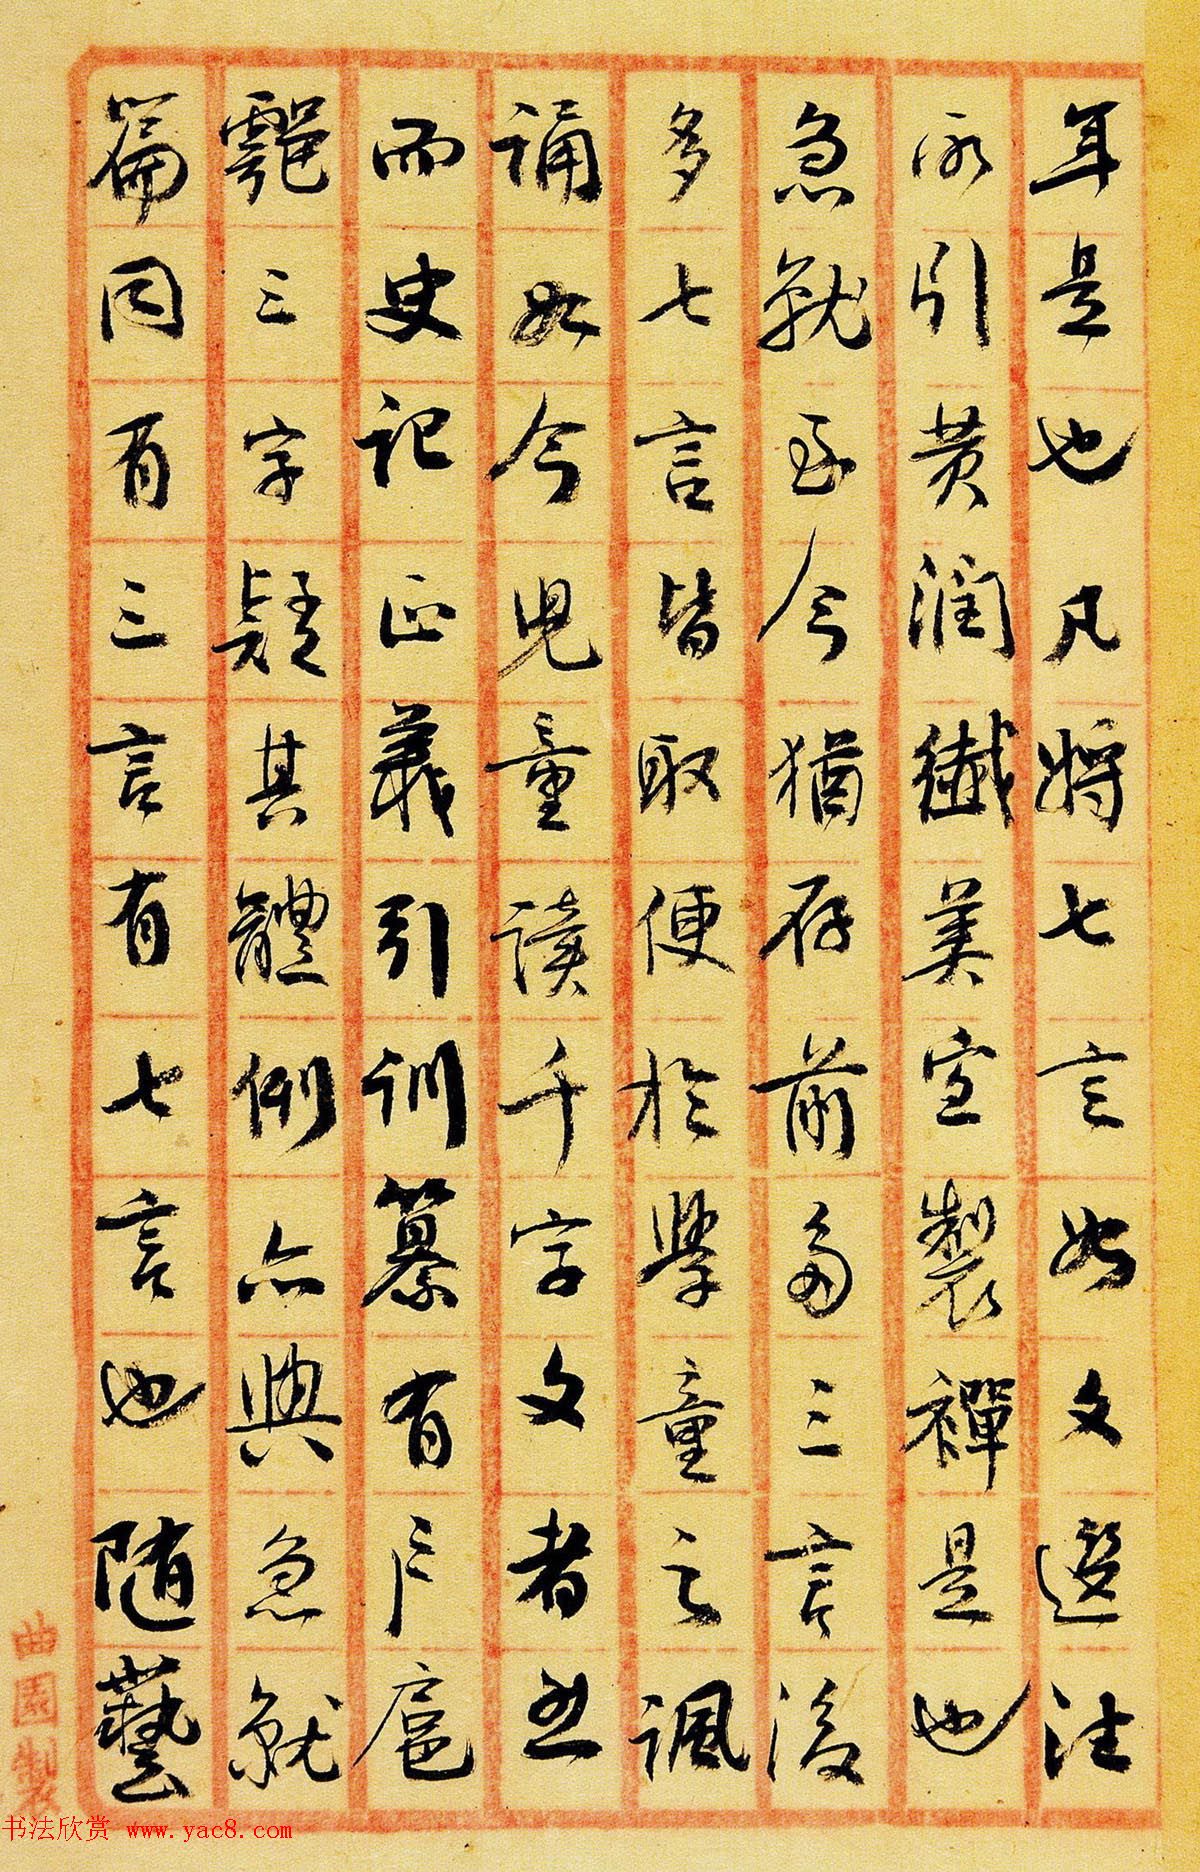 耳是也凡將七言如文選注
所引黃潤纖美宜製禪是也
急就至今猶存前多三言後
多七言皆取便於學童之諷
誦如今兒童讀千字文者然
而史記正義引訓纂有戶扈
鄠三字疑其體例亦與急就
篇同有三言有七言也隨藝
曲園製
书法欣赏 www.yac8.com